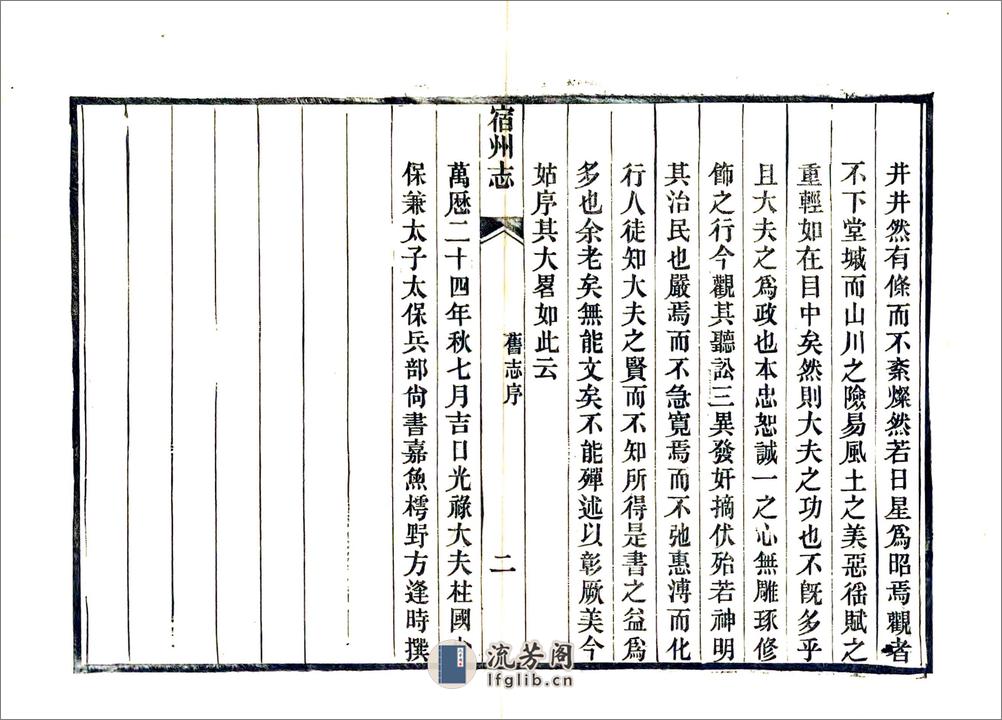 井井然有條而不紊燦然若日星爲昭焉觀者
不下堂堿而山川之險易風土之美惡徭賦之
重輕如在目中矣然則大夫之功也不旣多乎
且大夫之爲政也本忠恕誠一之心無雕琢修
飾之行今觀其聽訟三異發奸摘伏殆若神明
其治民也嚴焉而不急寬焉而不弛惠溥而化
行人徒知大夫之賢而不知所得是書之益爲
多也余老矣無能文矣不能殫述以彰厥美今
姑序其大畧如此云
宿州志
舊志序
二
萬曆二十四年秋七月吉日光祿大夫柱國少
保兼太子太保兵部尙書嘉魚樗野方逢時撰
流芳阁
lfglib.cn